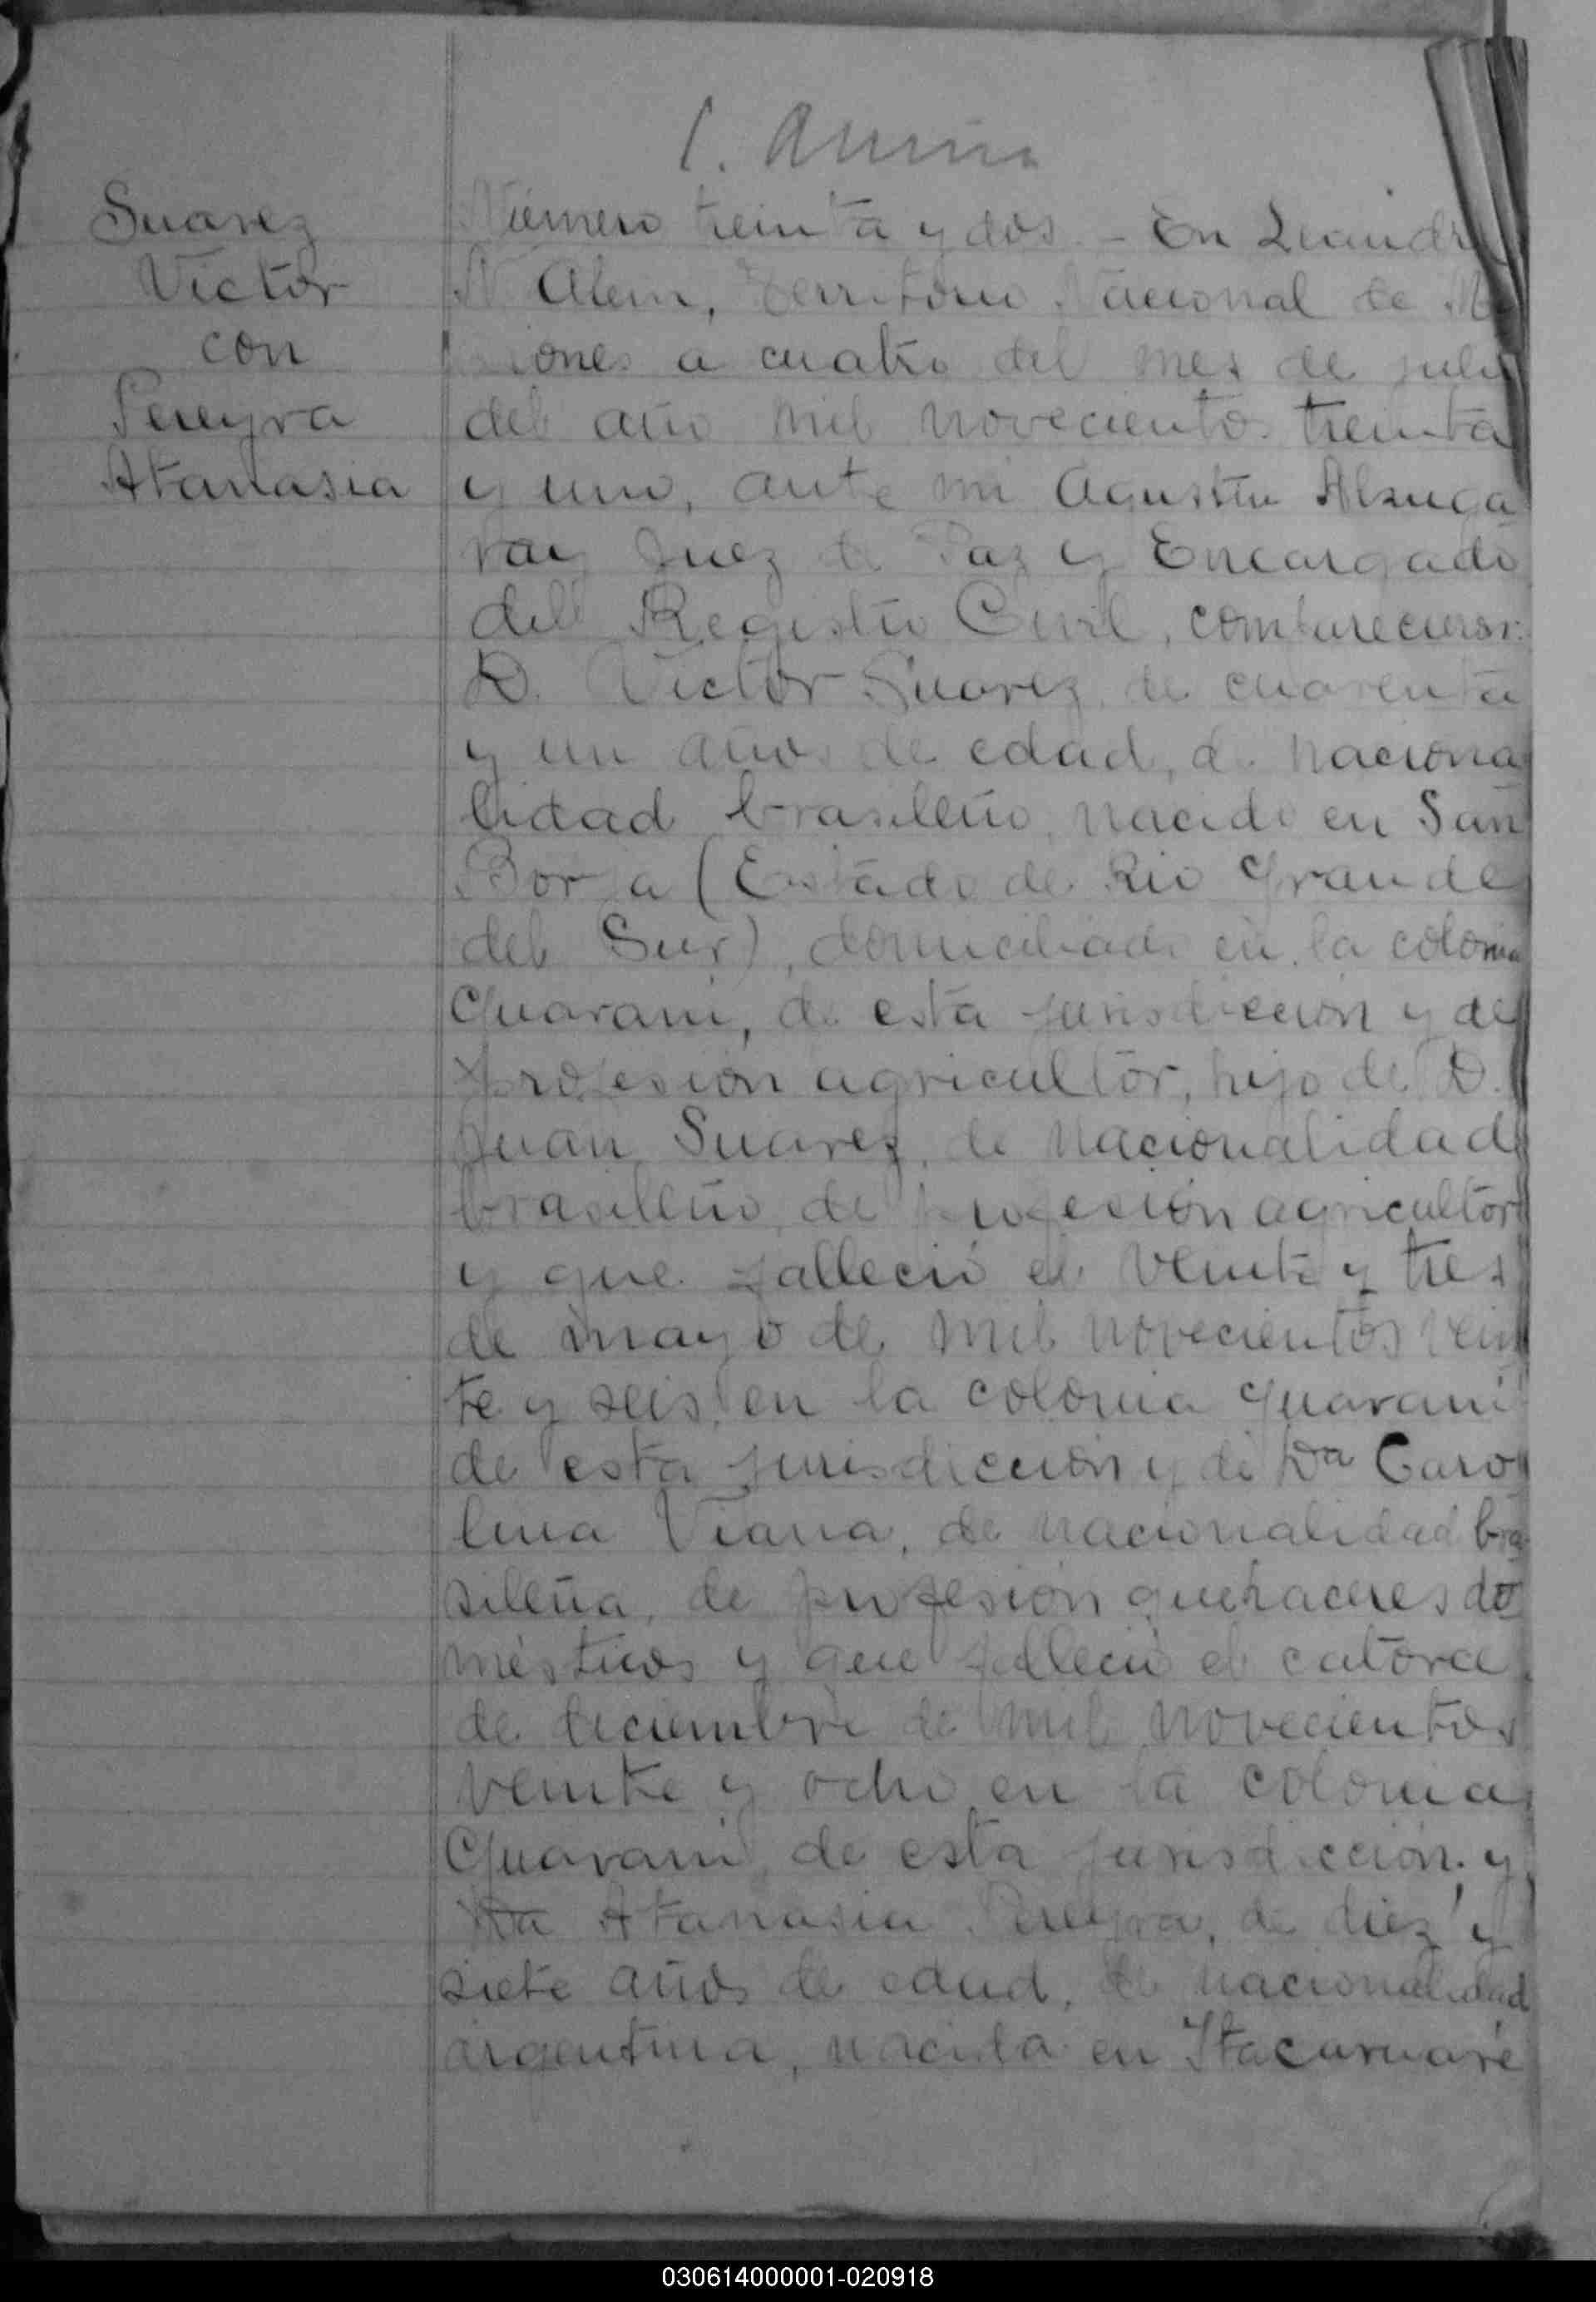 Suarez
Victor
con
Pereyra
Atanasia
Número treinta y dos. - En Leandro
N Alem, Territorio Nacional de Mi
siones a cuatro del mes de julio
del año mil novecientos treinta
y uno, ante mi Agustin Alzuga
ray Juez de Paz y Encargado
del Registro Civil, comparecieron:
D. Victor Suarez, de cuarenta
y un años de edad, de naciona
lidad brasileño, nacido en San
Borja (Estado de Rio Grande
del Sur), domiciliado en la colonia
Guaraní, de esta jurisdicción y de
profesión agricultor, hijo de D.
Juan Suarez, de nacionalidad
brasileño, de profesión agricultor
y que falleció el veinte y tres
de mayo de mil novecientos vein
te y seis, en la colonia Guaraní
de esta jurisdicción y de Da Caro
lina Viana, de nacionalidad bra
sileña, de profesión quehaceres do
mésticos y que falleció el catorce
de diciembre de mil novecientos
veinte y ocho, en la colonia
Guaraní, de esta jurisdicción; y
Da Atanasia Pereyra, de diez y
siete años de edad, de nacionalidad
argentina, nacida en Itacaruaré
030614000001-020918